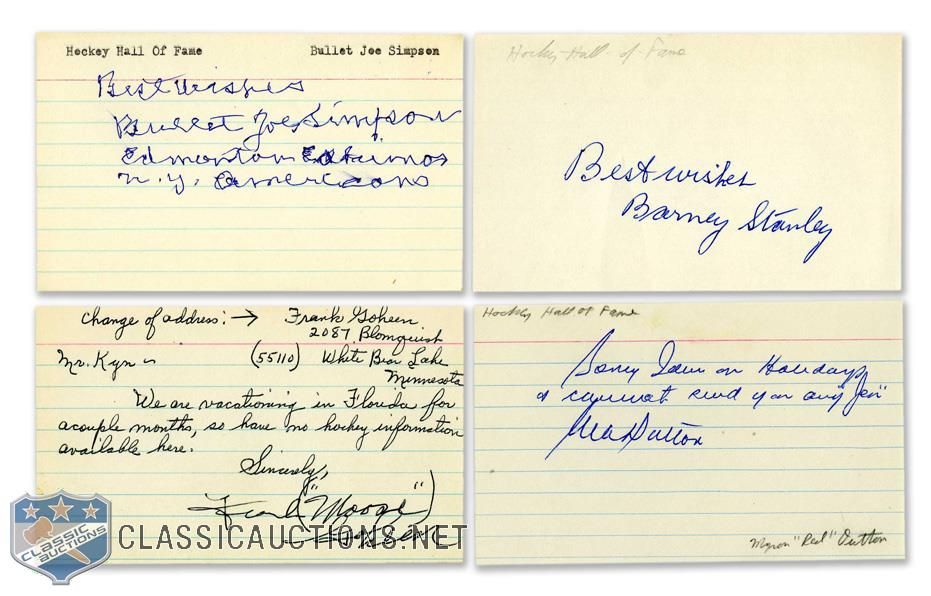 Hockey Hall Of Fame Bullet Joe Simpson
Best Wishes
Bullet Joe Simpson
Edmonton Eskimos
N.Y. Americans
Hockey Hall of Fame
Best wishes
Barney Stanley
Change of address: → Frank Goheen
2087 Blomquist
Mr. Kyn (55110) White Bear Lake
Minnesota
We are vacationing in Florida for
a couple months, so have no hockey information
available here.
Sincerely,
Frank ("Moose")
Goheen
Hockey Hall of Fame
Sorry I am on Holidays
& cannot send you any
Dutton
Myron "Red" Dutton
CLASSIC
AUCTIONS
CLASSICAUCTIONS.NET